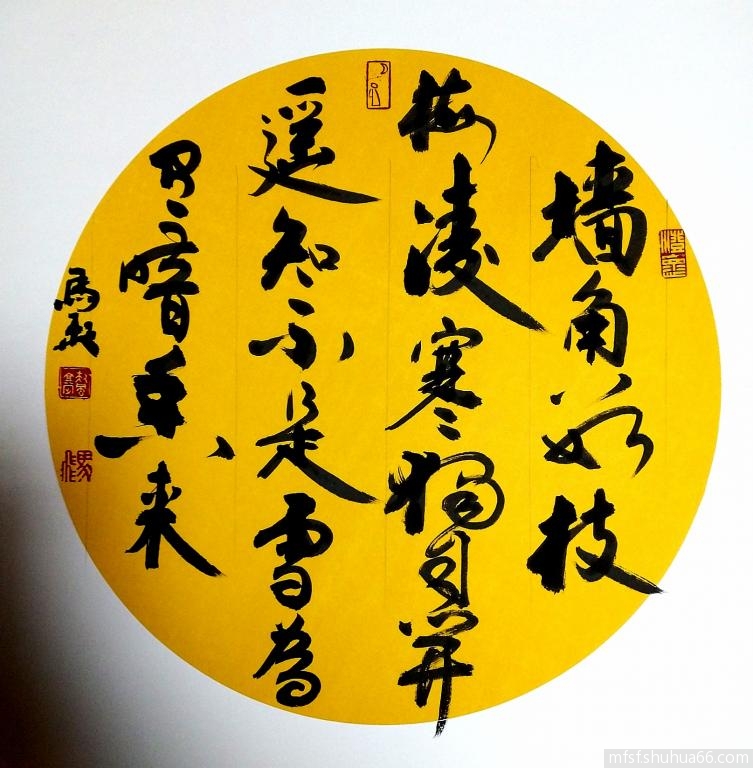 墙角数枝
梅凌寒獨自开
遥知不是雪為
有暗香来
馬
mfsfshuhua66.com